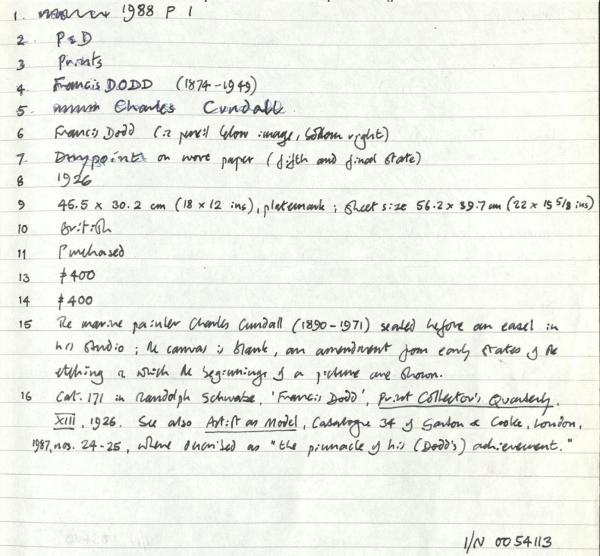 1. 1988 P 1
2. P&D
3 Prints
4. Francis DODD (1874-1949)
5. Charles Cundall
6 Francis Dodd (in pencil below image, bottom right)
7. Drypoint on wove paper (fifth and final state)
8 1926
9 45.5 x 30.2 cm (18 x 12 ins), platemark; sheet size 56.2 x 39.7 cm (22 x 15 5/8 ins)
10 British
11 Purchased
13 400
14 400
15 The marine painter Charles Cundall (1890-1971) seated before an easel in
his studio; the canvas is blank, an amendment from early states of the
etching in which the beginnings of a picture are shown.
16 Cat. 171 in Randolph Schwabe, 'Francis Dodd', Print Collector's Quarterly,
XIII, 1926. See also Artist as Model, Catalogue 34 of Garton & Cooke, London,
1987, nos. 24-25, where described as "the pinnacle of his (Dodd's) achievement."
I/N 0054113